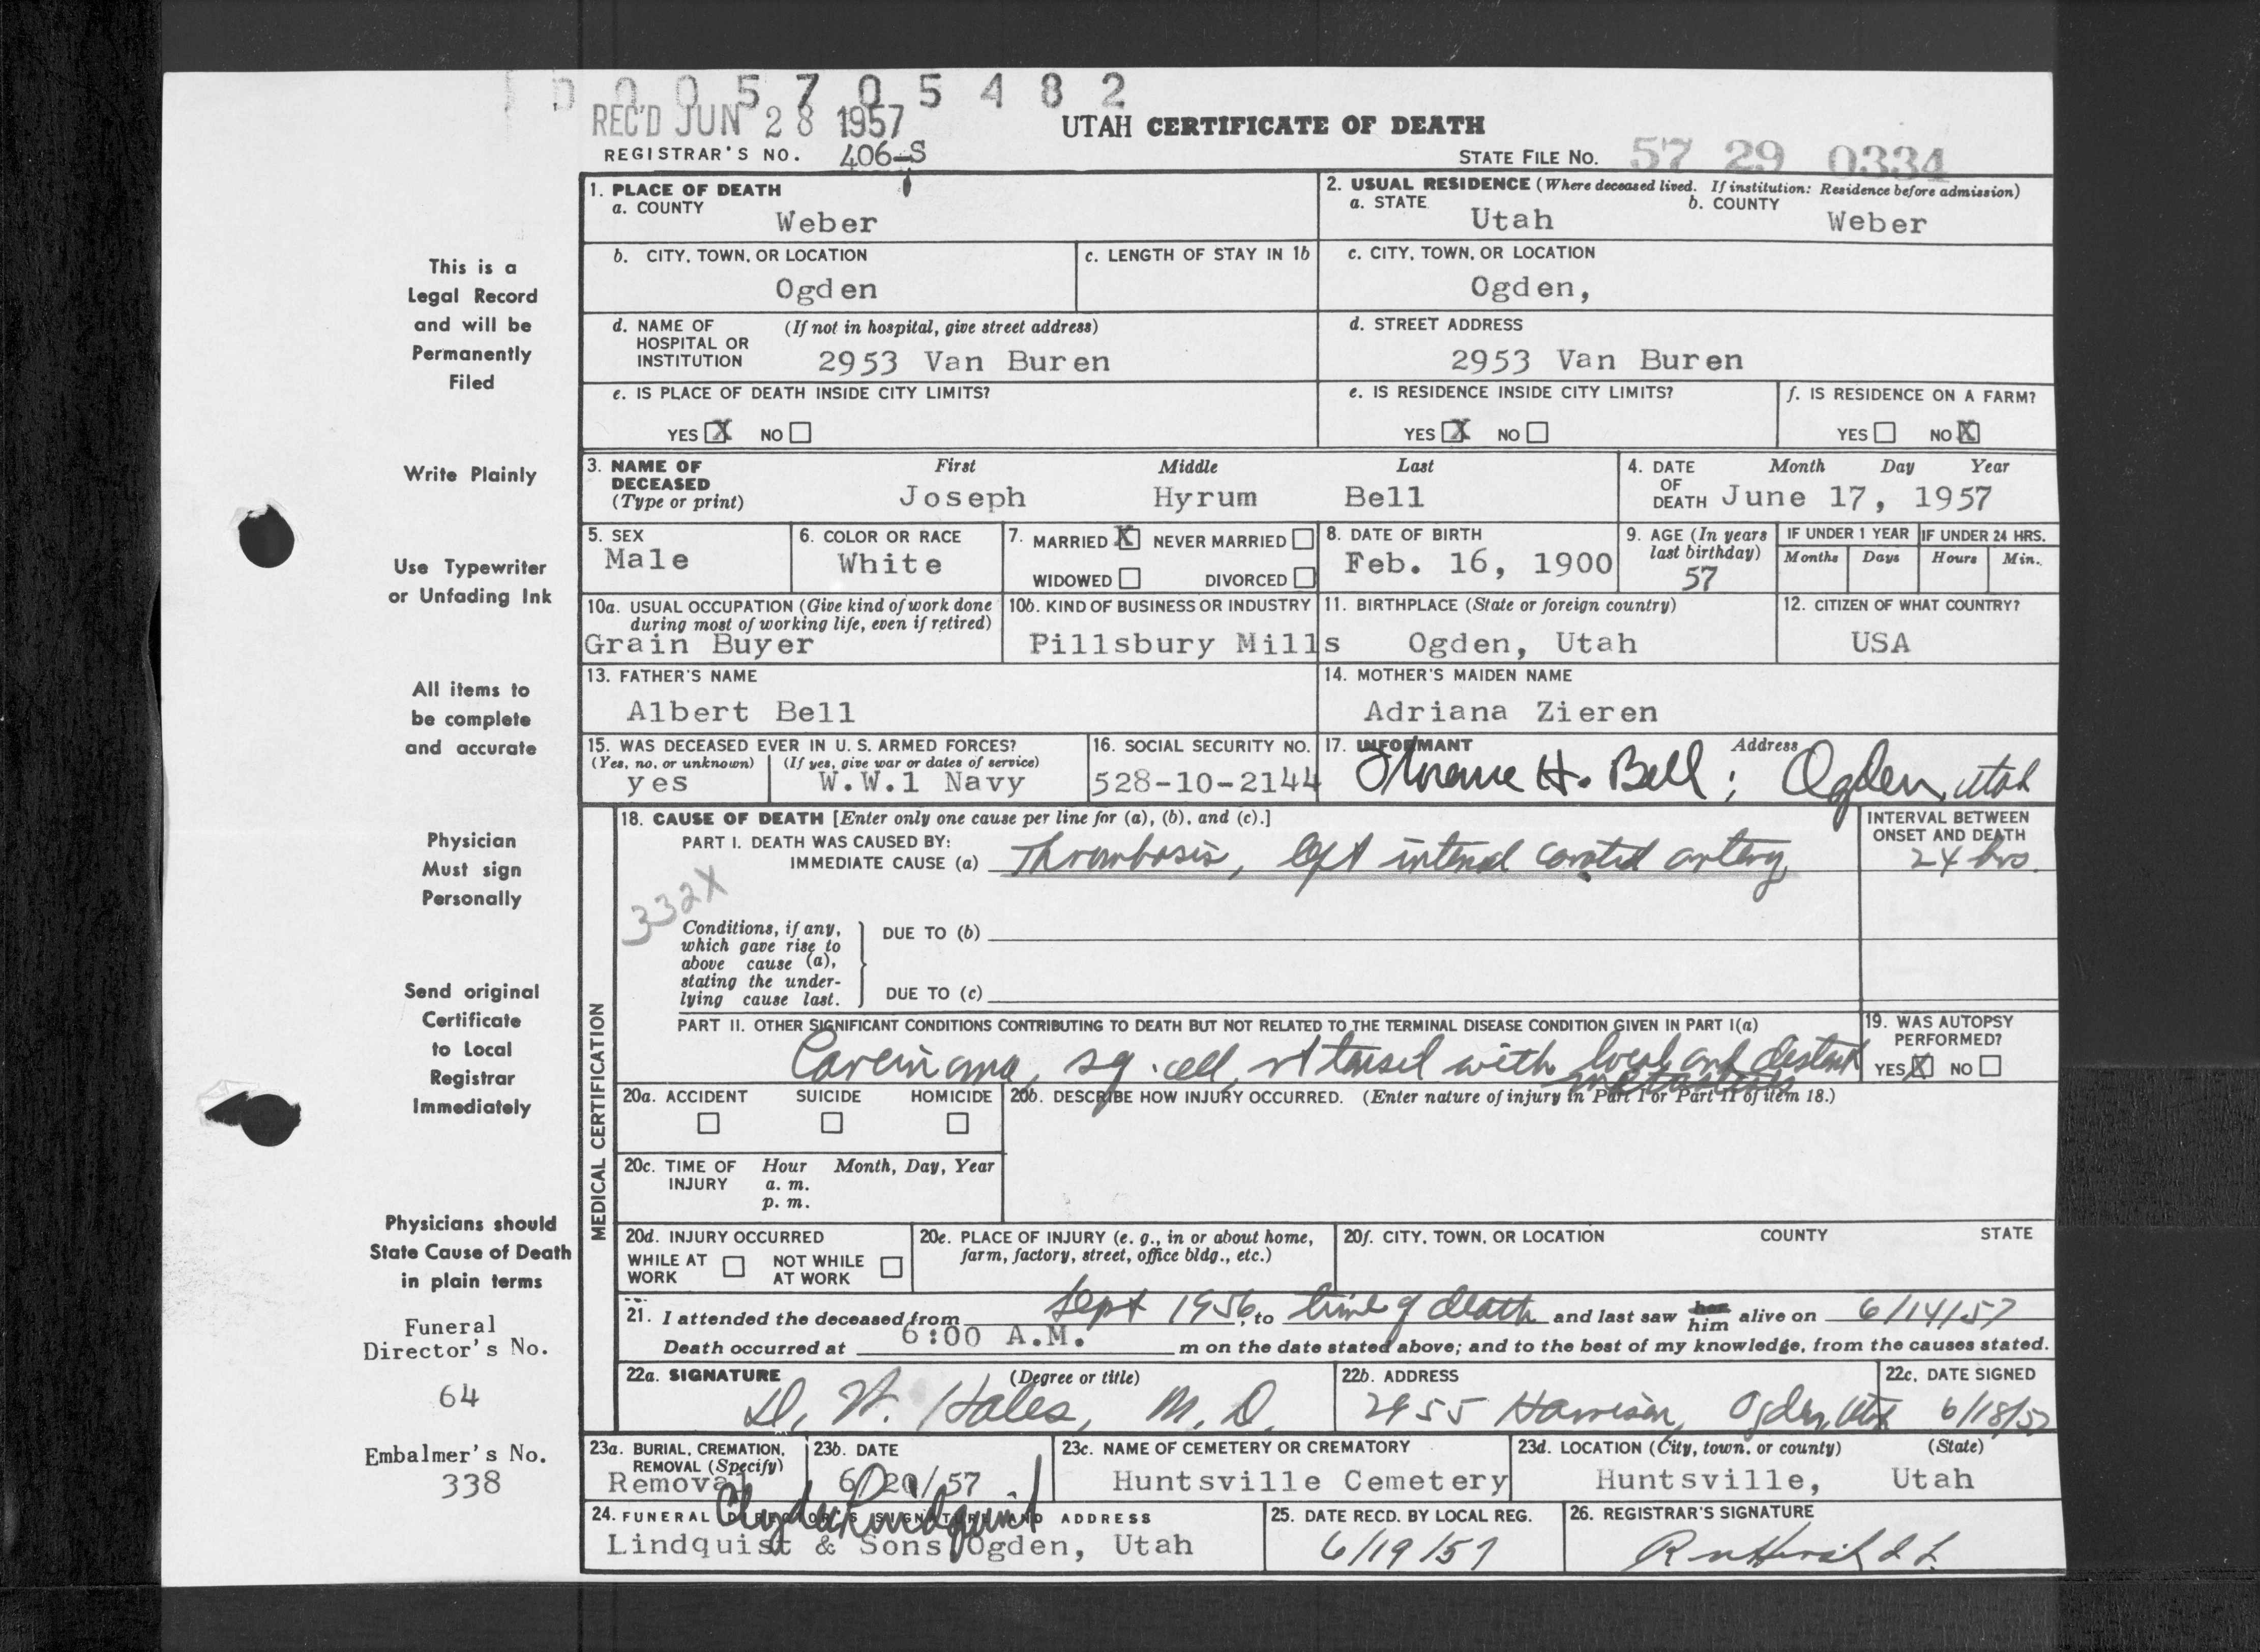 0 0 5 7 0 5 4 8 2
REC'D JUN 28 1957
UTAH CERTIFICATE OF DEATH
REGISTRAR'S NO. 406-S
STATE FILE NO. 57 29 0334
1. PLACE OF DEATH
a. COUNTY
Weber
2. USUAL RESIDENCE (Where deceased lived. If institution: Residence before admission)
a. STATE Utah b. COUNTY Weber
b. CITY, TOWN, OR LOCATION
Ogden
c. LENGTH OF STAY IN 1b
c. CITY, TOWN, OR LOCATION
Ogden,
d. NAME OF HOSPITAL OR INSTITUTION (If not in hospital, give street address)
2953 Van Buren
d. STREET ADDRESS
2953 Van Buren
e. IS PLACE OF DEATH INSIDE CITY LIMITS?
YES X NO
e. IS RESIDENCE INSIDE CITY LIMITS?
YES X NO
f. IS RESIDENCE ON A FARM?
YES NO X
3. NAME OF DECEASED (Type or print)
First Middle Last
Joseph Hyrum Bell
4. DATE OF DEATH Month Day Year
June 17, 1957
5. SEX
Male
6. COLOR OR RACE
White
7. MARRIED X NEVER MARRIED
WIDOWED DIVORCED
8. DATE OF BIRTH
Feb. 16, 1900
9. AGE (In years last birthday)
57
IF UNDER 1 YEAR
Months Days
IF UNDER 24 HRS.
Hours Min.
10a. USUAL OCCUPATION (Give kind of work done during most of working life, even if retired)
Grain Buyer
10b. KIND OF BUSINESS OR INDUSTRY
Pillsbury Mills
11. BIRTHPLACE (State or foreign country)
Ogden, Utah
12. CITIZEN OF WHAT COUNTRY?
USA
13. FATHER'S NAME
Albert Bell
14. MOTHER'S MAIDEN NAME
Adriana Zieren
15. WAS DECEASED EVER IN U. S. ARMED FORCES?
(Yes, no, or unknown) (If yes, give war or dates of service)
yes W.W.1 Navy
16. SOCIAL SECURITY NO.
528-10-2144
17. INFORMANT Address
H. Bell; Ogden, Utah
MEDICAL CERTIFICATION
18. CAUSE OF DEATH [Enter only one cause per line for (a), (b), and (c).]
PART I. DEATH WAS CAUSED BY:
IMMEDIATE CAUSE (a) Thrombosis, left internal carotid artery
INTERVAL BETWEEN ONSET AND DEATH
24 hrs.
332X
Conditions, if any, which gave rise to above cause (a), stating the underlying cause last.
DUE TO (b)
DUE TO (c)
PART II. OTHER SIGNIFICANT CONDITIONS CONTRIBUTING TO DEATH BUT NOT RELATED TO THE TERMINAL DISEASE CONDITION GIVEN IN PART I(a)
Carcinoma, sq. cell, rt tonsil with local and distant
metastasis
19. WAS AUTOPSY PERFORMED?
YES X NO
20a. ACCIDENT SUICIDE HOMICIDE
20b. DESCRIBE HOW INJURY OCCURRED. (Enter nature of injury in Part I or Part II of item 18.)
20c. TIME OF INJURY Hour Month, Day, Year
a. m.
p. m.
20d. INJURY OCCURRED
WHILE AT WORK NOT WHILE AT WORK
20e. PLACE OF INJURY (e. g., in or about home, farm, factory, street, office bldg., etc.)
20f. CITY, TOWN, OR LOCATION COUNTY STATE
21. I attended the deceased from Sept 1956, to time of death and last saw her him alive on 6/14/57
Death occurred at 6:00 A.M. m on the date stated above; and to the best of my knowledge, from the causes stated.
22a. SIGNATURE (Degree or title)
D. W. Hales, M. D.
22b. ADDRESS
2955 Harrison, Ogden, Utah
22c. DATE SIGNED
6/18/57
23a. BURIAL, CREMATION, REMOVAL (Specify)
Removal
23b. DATE
6/20/57
23c. NAME OF CEMETERY OR CREMATORY
Huntsville Cemetery
23d. LOCATION (City, town, or county) (State)
Huntsville, Utah
24. FUNERAL DIRECTOR'S SIGNATURE AND ADDRESS
Clyde Lindquist
Lindquist & Sons Ogden, Utah
25. DATE RECD. BY LOCAL REG.
6/19/57
26. REGISTRAR'S SIGNATURE
This is a
Legal Record
and will be
Permanently
Filed
Write Plainly
Use Typewriter
or Unfading Ink
All items to
be complete
and accurate
Physician
Must sign
Personally
Send original
Certificate
to Local
Registrar
Immediately
Physicians should
State Cause of Death
in plain terms
Funeral
Director's No.
64
Embalmer's No.
338